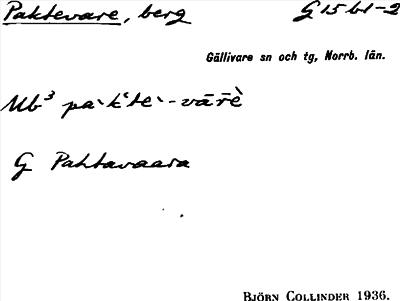 Paktevare, berg G 15 b1-2
Gällivare sn och tg, Norrb. län.
Ub³ pa·k'te·-vārè
G Pahtavaara
BJÖRN COLLINDER 1936.